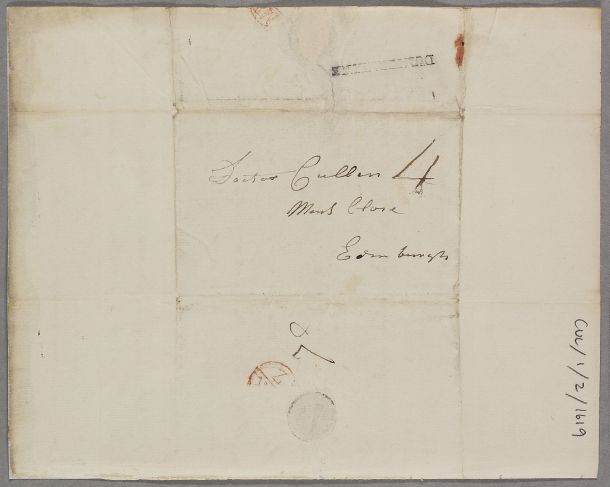 Doctor Cullen 4
Mint Close
Edinburgh
CUL/1/2/1619